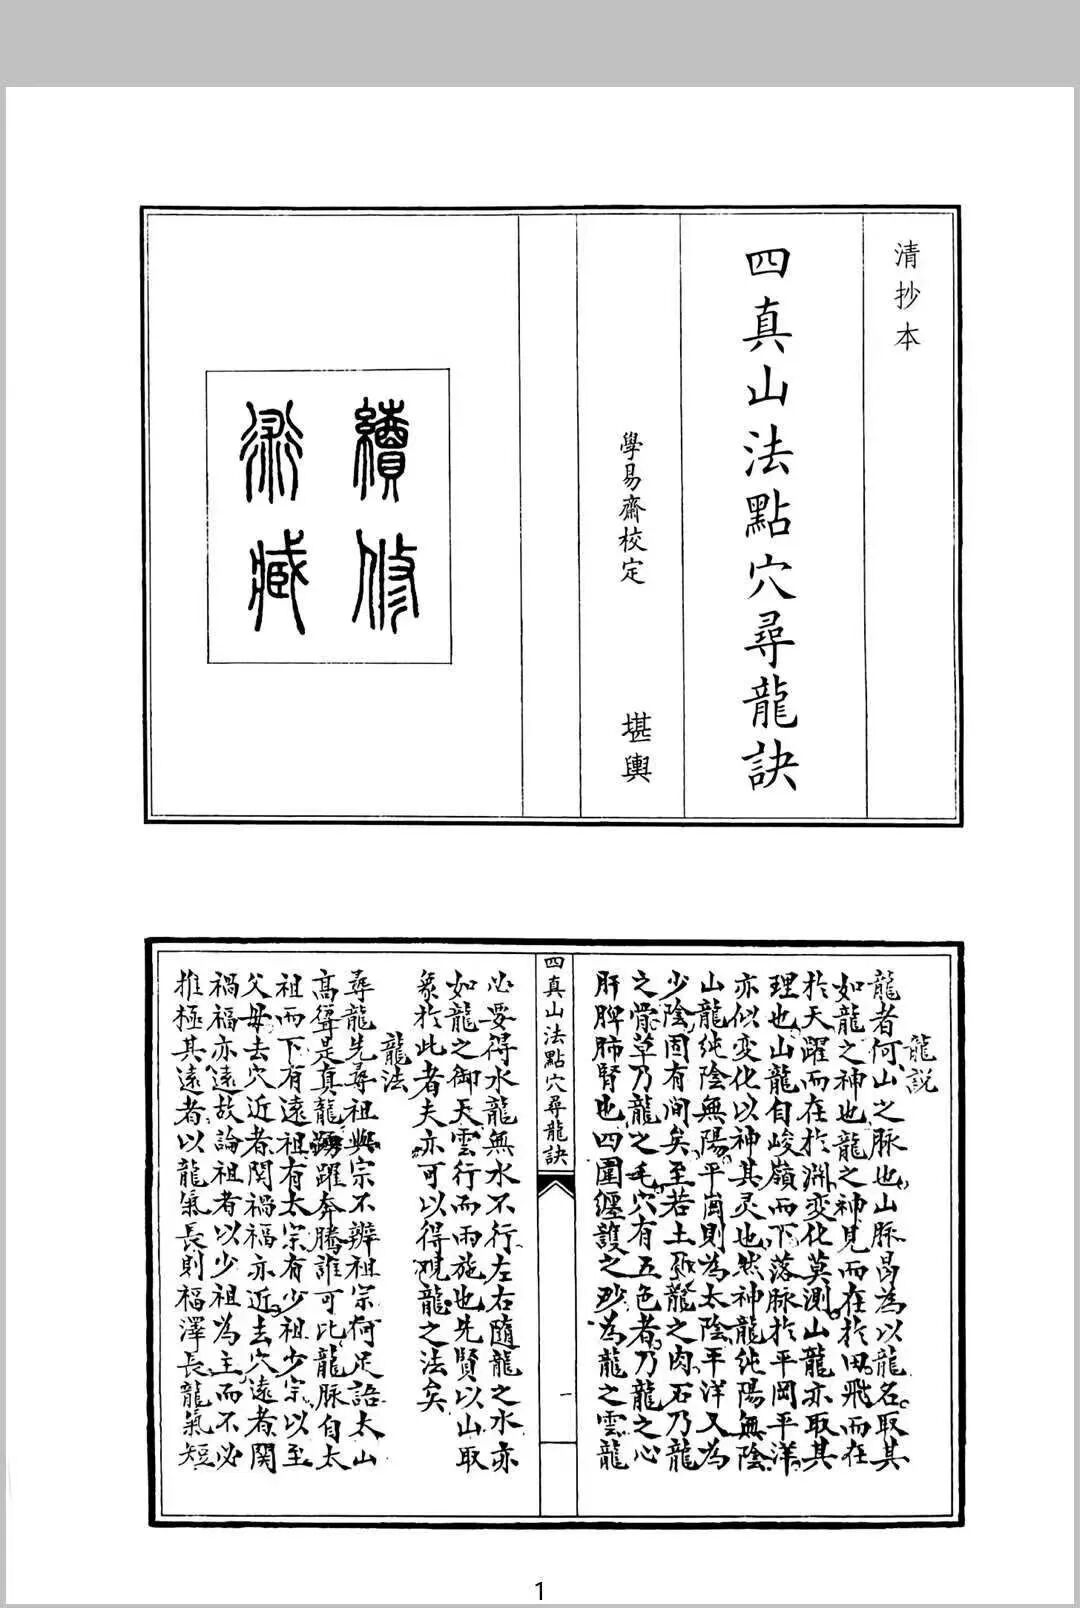 清抄本
四真山法點穴尋龍訣
學易齋校定 堪輿
續修
術藏
龍説
龍者何山之脉也山脉曷為以龍名取其
如龍之神也龍之神見而在於田飛而在
於天躍而在於淵变化莫測山龍亦取其
理也山龍自峻嶺而下落脉於平岡平洋
亦似变化以神其灵也然神龍純陽無陰
山龍純陰無陽平崗則為太陰平洋又為
少陰固有间矣至若土乃龍之肉石乃龍
之骨草乃龍之毛穴有五色者乃龍之心
肝脾肺腎也四圍纏護之砂為龍之雲龍
四真山法點穴尋龍訣
一
必要得水龍無水不行左右隨龍之水亦
如龍之御天雲行而雨施也先賢以山取
象於此者夫亦可以得觀龍之法矣
龍法
尋龍先尋祖與宗不辨祖宗何足語太山
高聳是真龍踴躍奔騰誰可比龍脉自太
祖而下有遠祖有太宗有少祖少宗以至
父母去穴近者関禍福亦近去穴遠者関
禍福亦遠故論祖者以少祖為主而不必
推極其遠者以龍氣長則福澤長龍氣短
1